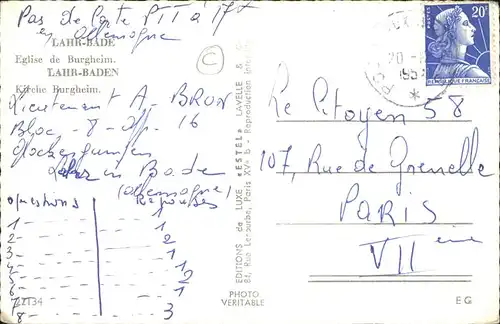 Pas de Carte PTT à 17f
en Allemagne
LAHR-BADE
Eglise de Burgheim.
LAHR-BADEN
Kirche Burgheim.
Lieutenant A. BRON
Bloc - 8 - 16
Lahr in Bade
(Allemagne)
Questions Réponses
1- 1
2- 2
3- 1
4- 1
5- 1
6- 2
7-
8- 3
22134
EDITIONS de LUXE "ESTEL" LAVELLE &
84, Rue Lecourbe, Paris XVe - Reproduction
PHOTO
VERITABLE
20
195
POSTES
20F
REPUBLIQUE FRANÇAISE
Le Citoyen 58
107, Rue de Grenelle
PARIS
VII ème
EG